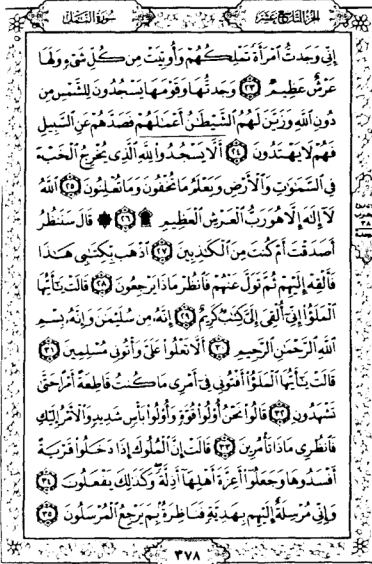 سورة النمل
الجزء التاسع عشر
إِنِّي وَجَدتُّ ٱمْرَأَةً تَمْلِكُهُمْ وَأُوتِيَتْ مِن كُلِّ شَيْءٍ وَلَهَا
عَرْشٌ عَظِيمٌ ٢٣ وَجَدتُّهَا وَقَوْمَهَا يَسْجُدُونَ لِلشَّمْسِ مِن
دُونِ ٱللَّهِ وَزَيَّنَ لَهُمُ ٱلشَّيْطَٰنُ أَعْمَٰلَهُمْ فَصَدَّهُمْ عَنِ ٱلسَّبِيلِ
فَهُمْ لَا يَهْتَدُونَ ٢٤ أَلَّا يَسْجُدُوا۟ لِلَّهِ ٱلَّذِي يُخْرِجُ ٱلْخَبْءَ
فِي ٱلسَّمَٰوَٰتِ وَٱلْأَرْضِ وَيَعْلَمُ مَا تُخْفُونَ وَمَا تُعْلِنُونَ ٢٥ ٱللَّهُ
لَآ إِلَٰهَ إِلَّا هُوَ رَبُّ ٱلْعَرْشِ ٱلْعَظِيمِ ۩ ٢٦ ۞ قَالَ سَنَنظُرُ
أَصَدَقْتَ أَمْ كُنتَ مِنَ ٱلْكَٰذِبِينَ ٢٧ ٱذْهَب بِّكِتَٰبِي هَٰذَا
فَأَلْقِهْ إِلَيْهِمْ ثُمَّ تَوَلَّ عَنْهُمْ فَٱنظُرْ مَاذَا يَرْجِعُونَ ٢٨ قَالَتْ يَٰٓأَيُّهَا
ٱلْمَلَؤُا۟ إِنِّيٓ أُلْقِيَ إِلَيَّ كِتَٰبٌ كَرِيمٌ ٢٩ إِنَّهُۥ مِن سُلَيْمَٰنَ وَإِنَّهُۥ بِسْمِ
ٱللَّهِ ٱلرَّحْمَٰنِ ٱلرَّحِيمِ ٣٠ أَلَّا تَعْلُوا۟ عَلَيَّ وَأْتُونِي مُسْلِمِينَ ٣١
قَالَتْ يَٰٓأَيُّهَا ٱلْمَلَؤُا۟ أَفْتُونِي فِيٓ أَمْرِي مَا كُنتُ قَاطِعَةً أَمْرًا حَتَّىٰ
تَشْهَدُونِ ٣٢ قَالُوا۟ نَحْنُ أُو۟لُوا۟ قُوَّةٍ وَأُو۟لُوا۟ بَأْسٍ شَدِيدٍ وَٱلْأَمْرُ إِلَيْكِ
فَٱنظُرِي مَاذَا تَأْمُرِينَ ٣٣ قَالَتْ إِنَّ ٱلْمُلُوكَ إِذَا دَخَلُوا۟ قَرْيَةً
أَفْسَدُوهَا وَجَعَلُوٓا۟ أَعِزَّةَ أَهْلِهَآ أَذِلَّةً وَكَذَٰلِكَ يَفْعَلُونَ ٣٤
وَإِنِّي مُرْسِلَةٌ إِلَيْهِم بِهَدِيَّةٍ فَنَاظِرَةٌۢ بِمَ يَرْجِعُ ٱلْمُرْسَلُونَ ٣٥
٣٧٨